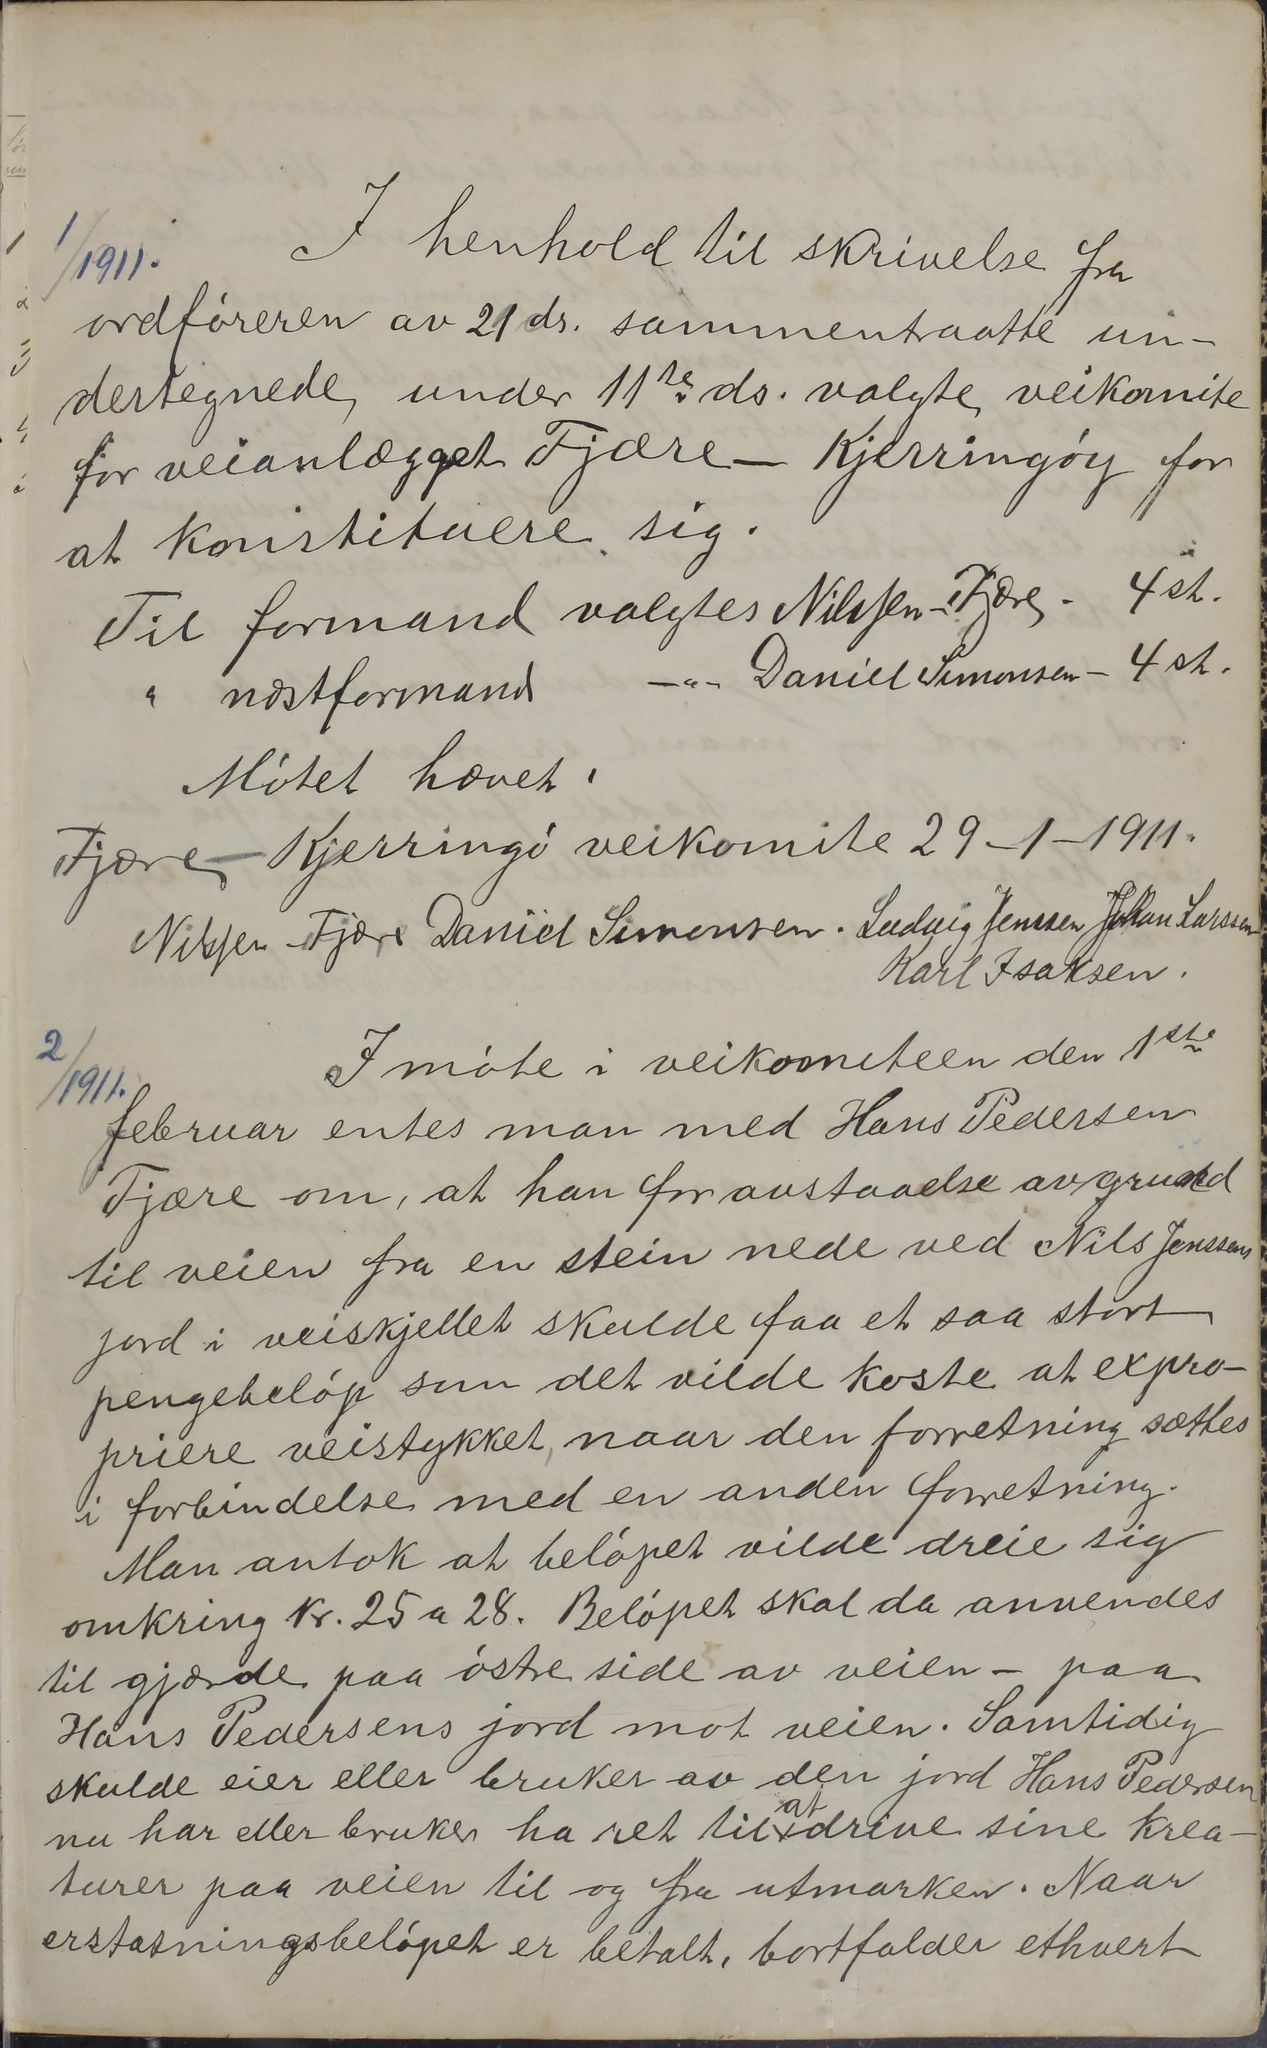 1/1911. I henhold til skrivelse fra
ordføreren av 21 ds. sammentraatte un-
dertegnede, under 11te ds. valgte, veikomite
for veianlægget Fjære – Kjerringøy for
at konstituere sig.
Til formand valgtes Nilssen-Fjære - 4 st.
" næstformand -"- Daniel Simonsen - 4 st.
Møtet hævet.
Fjære – Kjerringø veikomite 29-1-1911.
Nilssen-Fjære Daniel Simonsen. Ludvig Jenssen Johan Larssen
Karl Isaksen.
2/1911. I møte i veikomiteen den 1ste
februar entes man med Hans Pedersen
Fjære om, at han for avstaaelse av grund
til veien fra en stein nede ved Nils Jenssens
jord i veiskjellet skulde faa et saa stort
pengebeløp som det vilde koste at expro-
priere veistykket, naar den forretning sættes
i forbindelse med en anden forretning.
Man antok at beløpet vilde dreie sig
omkring kr. 25 a 28. Beløpet skal da anvendes
til gjærde paa østre side av veien – paa
Hans Pedersens jord mot veien. Samtidig
skulde eier eller bruker av den jord Hans Pedersen
nu har eller bruker ha ret til at drive sine krea-
turer paa veien til og fra utmarken. Naar
erstatningsbeløpet er betalt, bortfalder ethvert